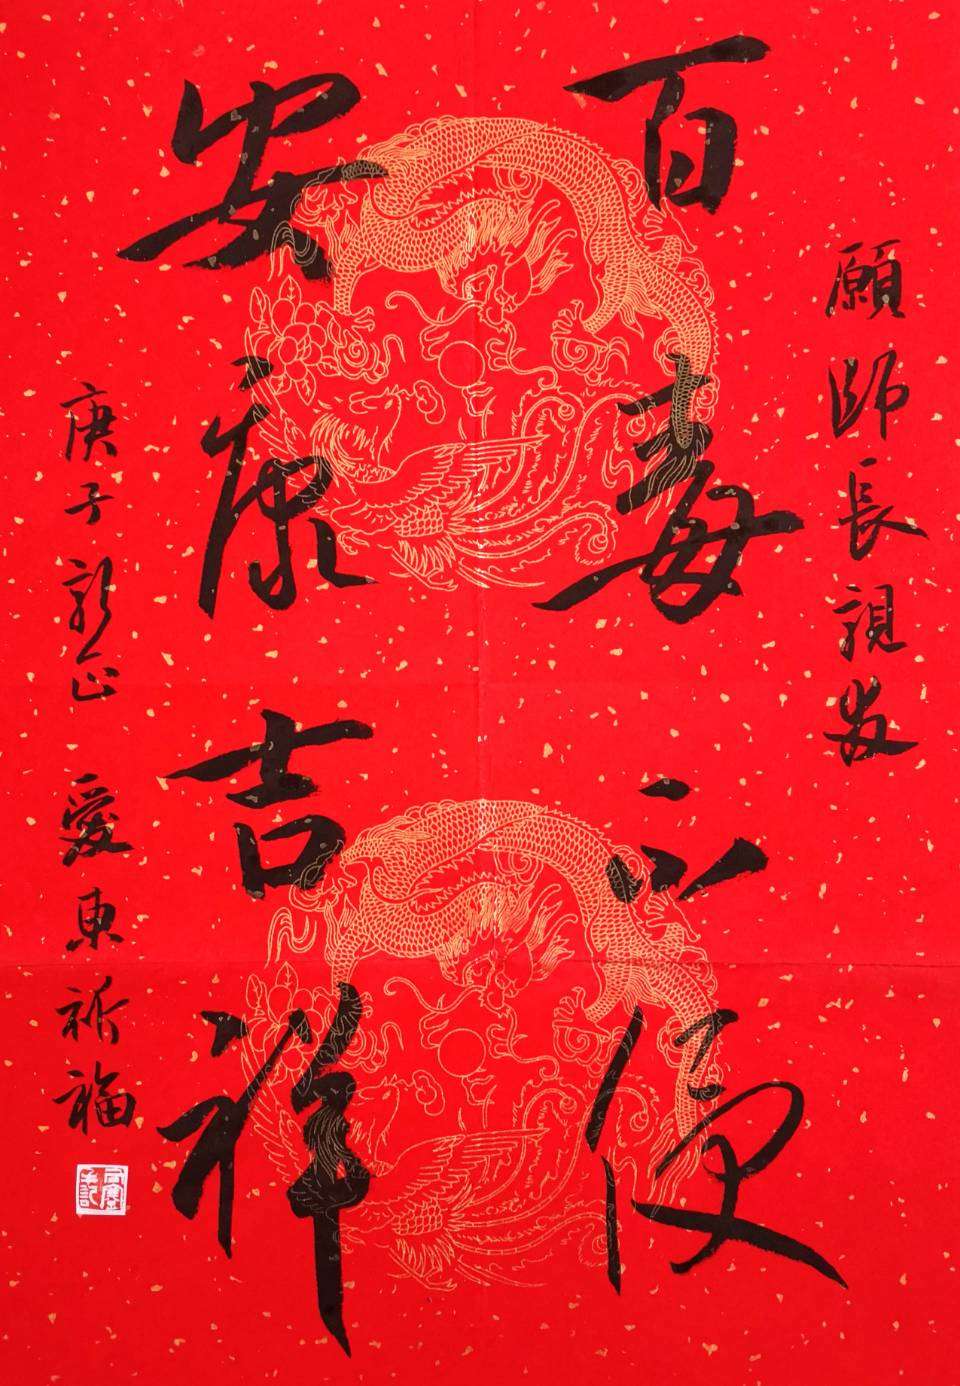 願師長親友
百毒不侵
安康吉祥
庚子新正 愛東祈福